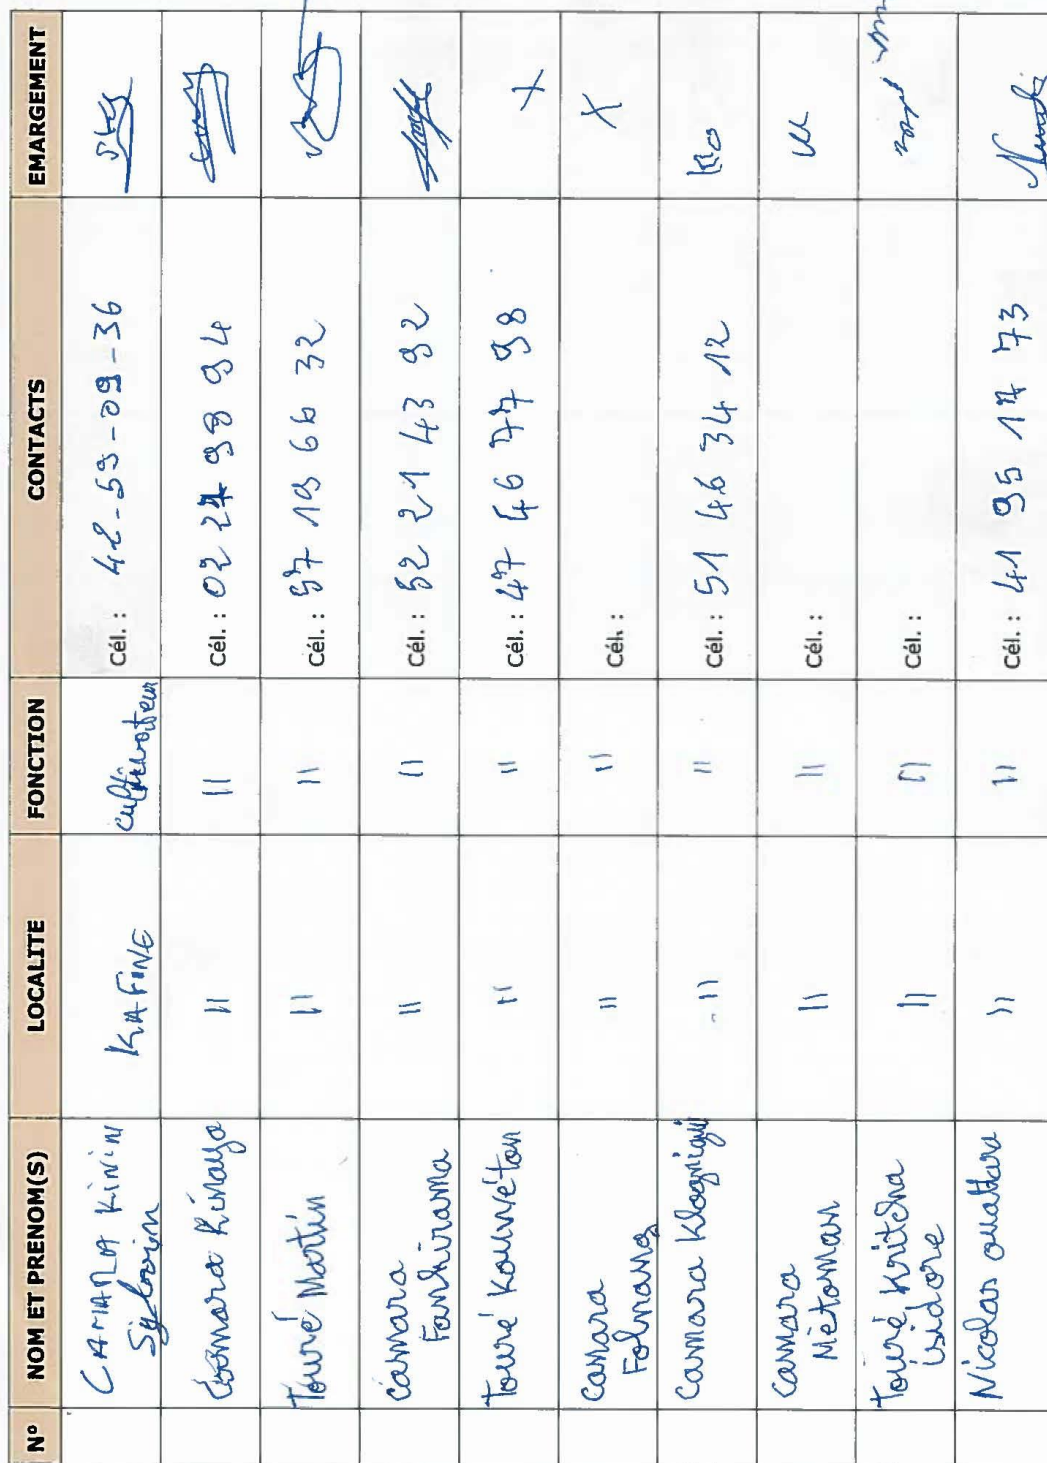 N° NOM ET PRENOM(S) LOCALITE FONCTION CONTACTS EMARGEMENT
CAMARA Kinini
Sylvain KAFINE cultivateur Cél. : 42-59-09-36
Camara Kinaya " " Cél. : 02 24 98 94
Touré Martin " " Cél. : 57 19 66 32
Camara
Fanhirama " " Cél. : 52 21 43 92
Touré Kounéton " " Cél. : 47 46 77 98 X
Camara
Folnang " " Cél. : X
Camara Klognigui " " Cél. : 51 46 34 12 Klo
Camara
Mètoman " " Cél. :
Touré Kritcha
isidore " " Cél. :
Nicolas ouattara " " Cél. : 41 95 17 73